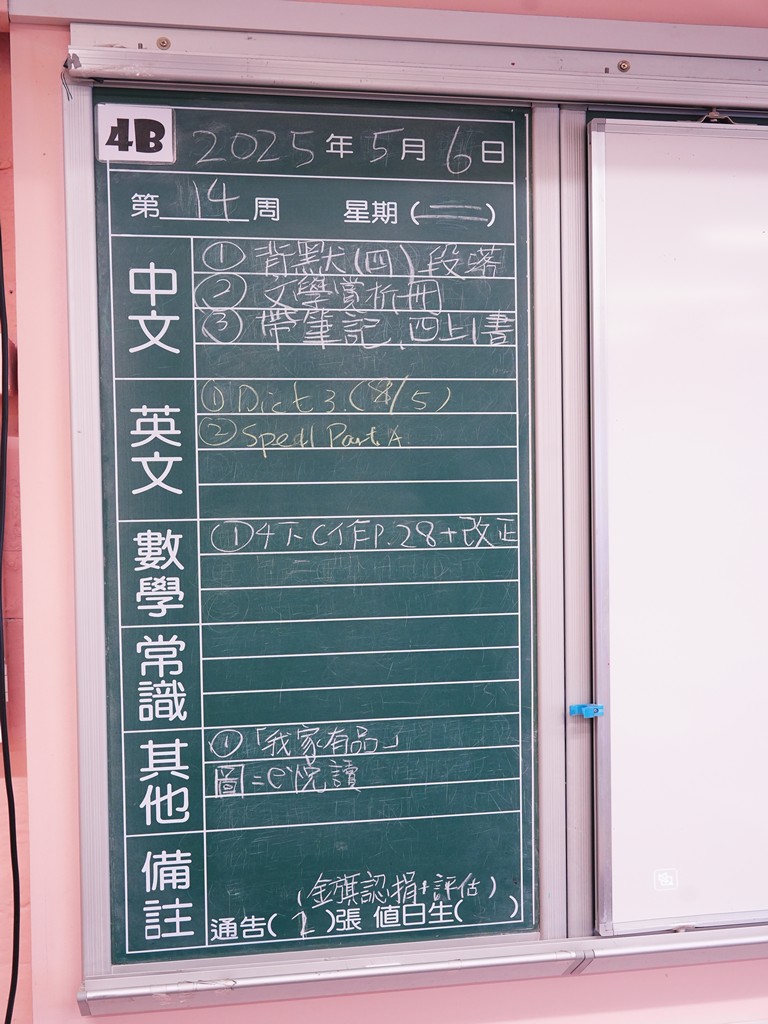 4B 2025年5月6日
第14周 星期(二)
中文
① 背默(四)段落
② 文學賞析冊
③ 帶筆記、四上1書
英文
① Dict 3.(8/5)
② Spell Part A
數學
① 4下C作P.28+改正
常識
其他
①「我家有品」
圖=e悅讀
備註
(金旗認捐+評估)
通告(2)張 值日生( )